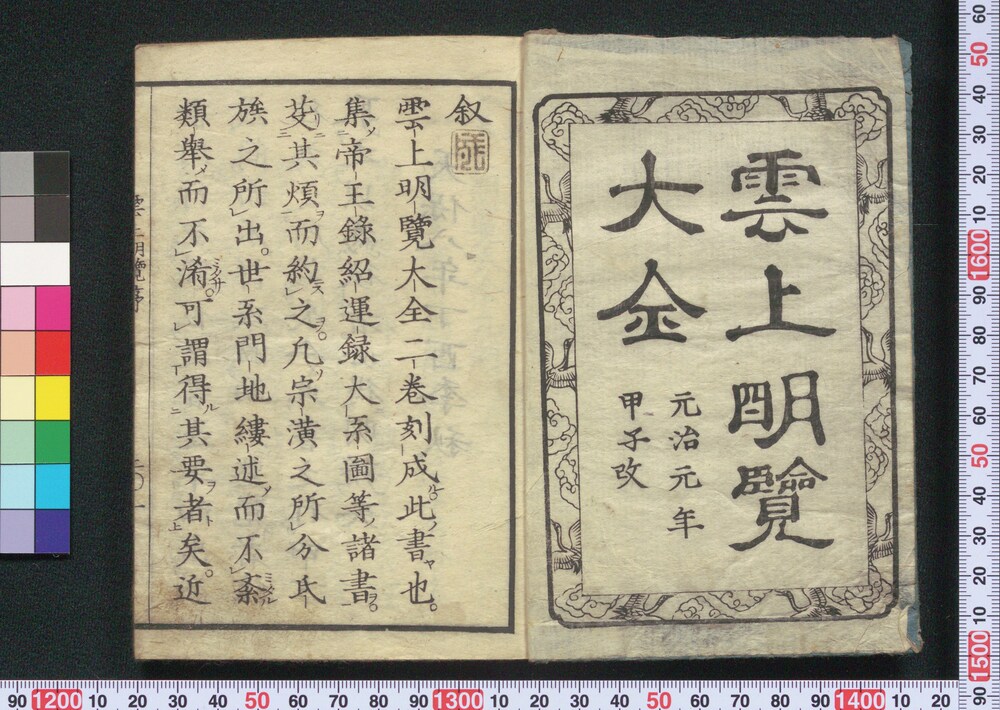 雲上明覽
大全
元治元年
甲子改
叙
雲上明覽大全二卷刻成此書也。
集帝王錄紹運録大系圖等諸書。
芟其煩而約之凢宗潢之所分氏
族之所出。世系門地縷述而不紊
類舉而不淆。可謂得其要者矣。近
60
50
40
30
20
10
1600
90
80
70
60
50
40
30
20
10
1500
90
90
1200
10
20
30
40
50
60
70
80
90
1300
10
20
30
40
50
60
70
80
90
1400
10
20